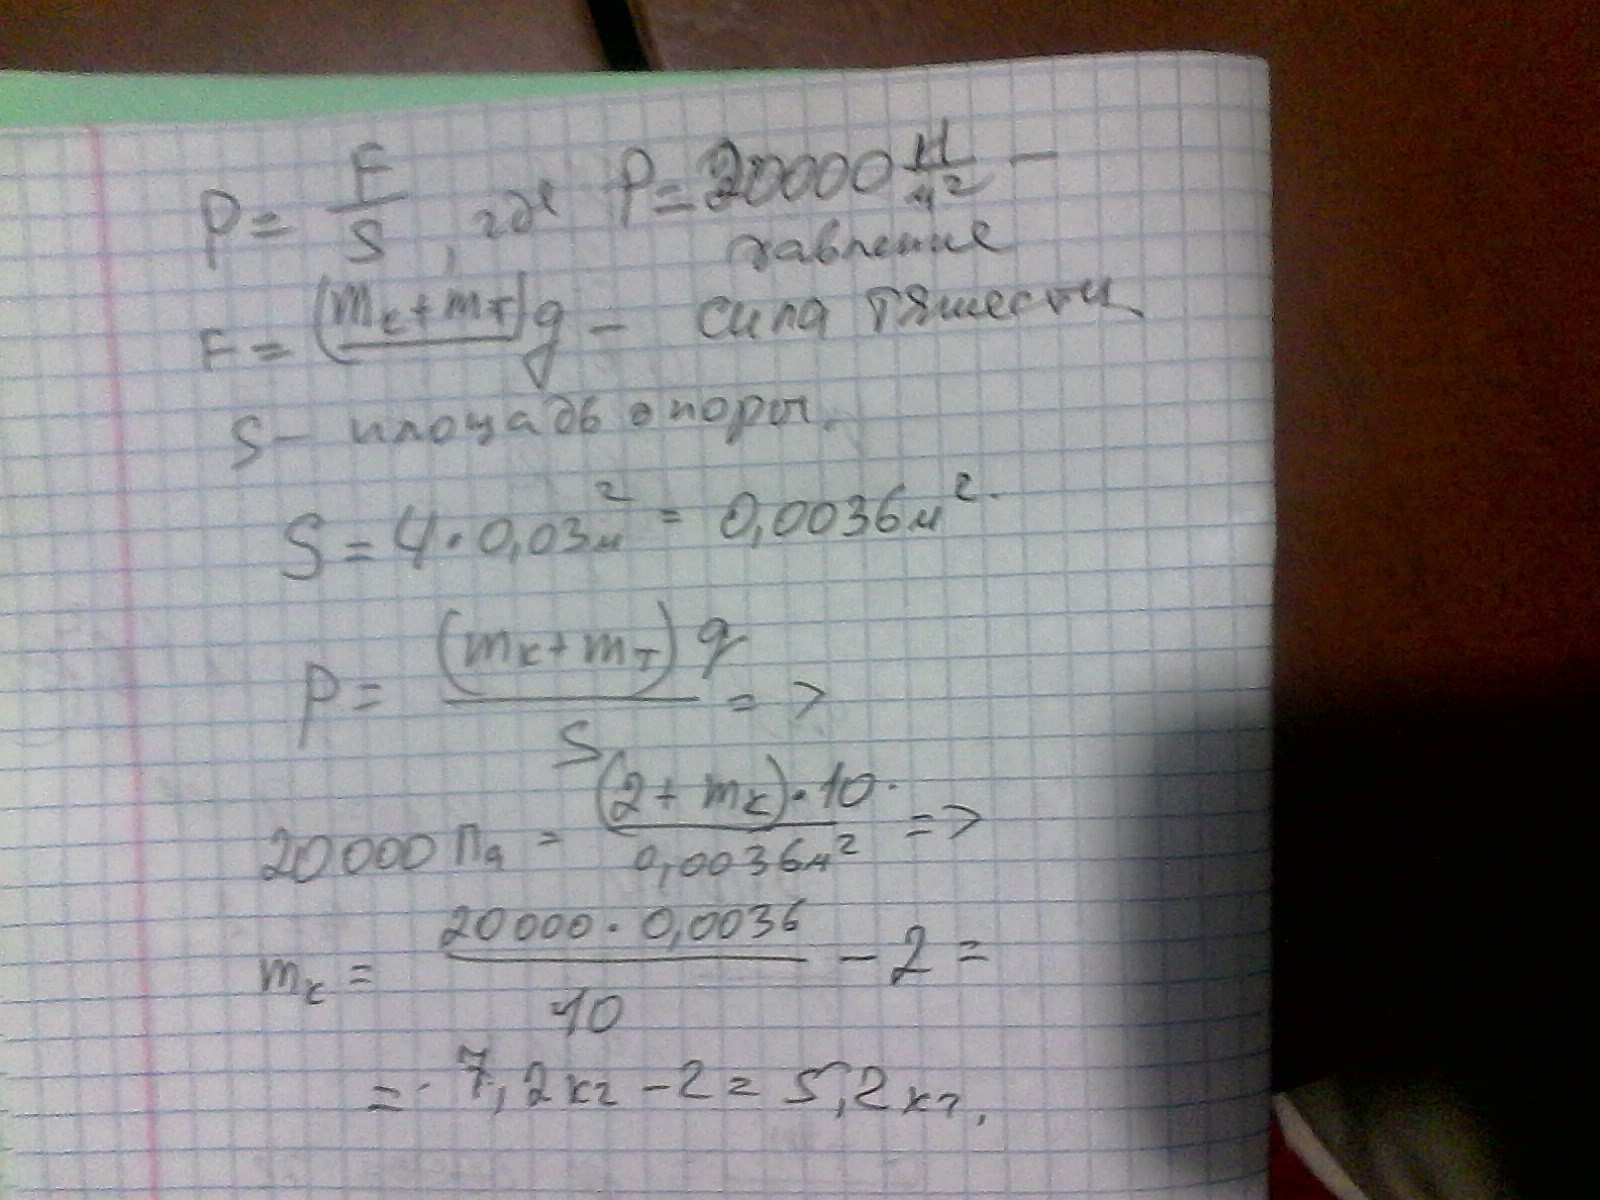 P = F/S, где P = 20000 Н/м² –
давление
F = (mк + mт)g – сила тяжести
S – площадь опоры.
S = 4 · 0,03м² = 0,0036м².
P = (mк + mт) g / S = >
20000 Па = (2 + mк) · 10 / 0,0036м² = >
mк = 20000 · 0,0036 / 10 – 2 =
= 7,2кг – 2 = 5,2кг.